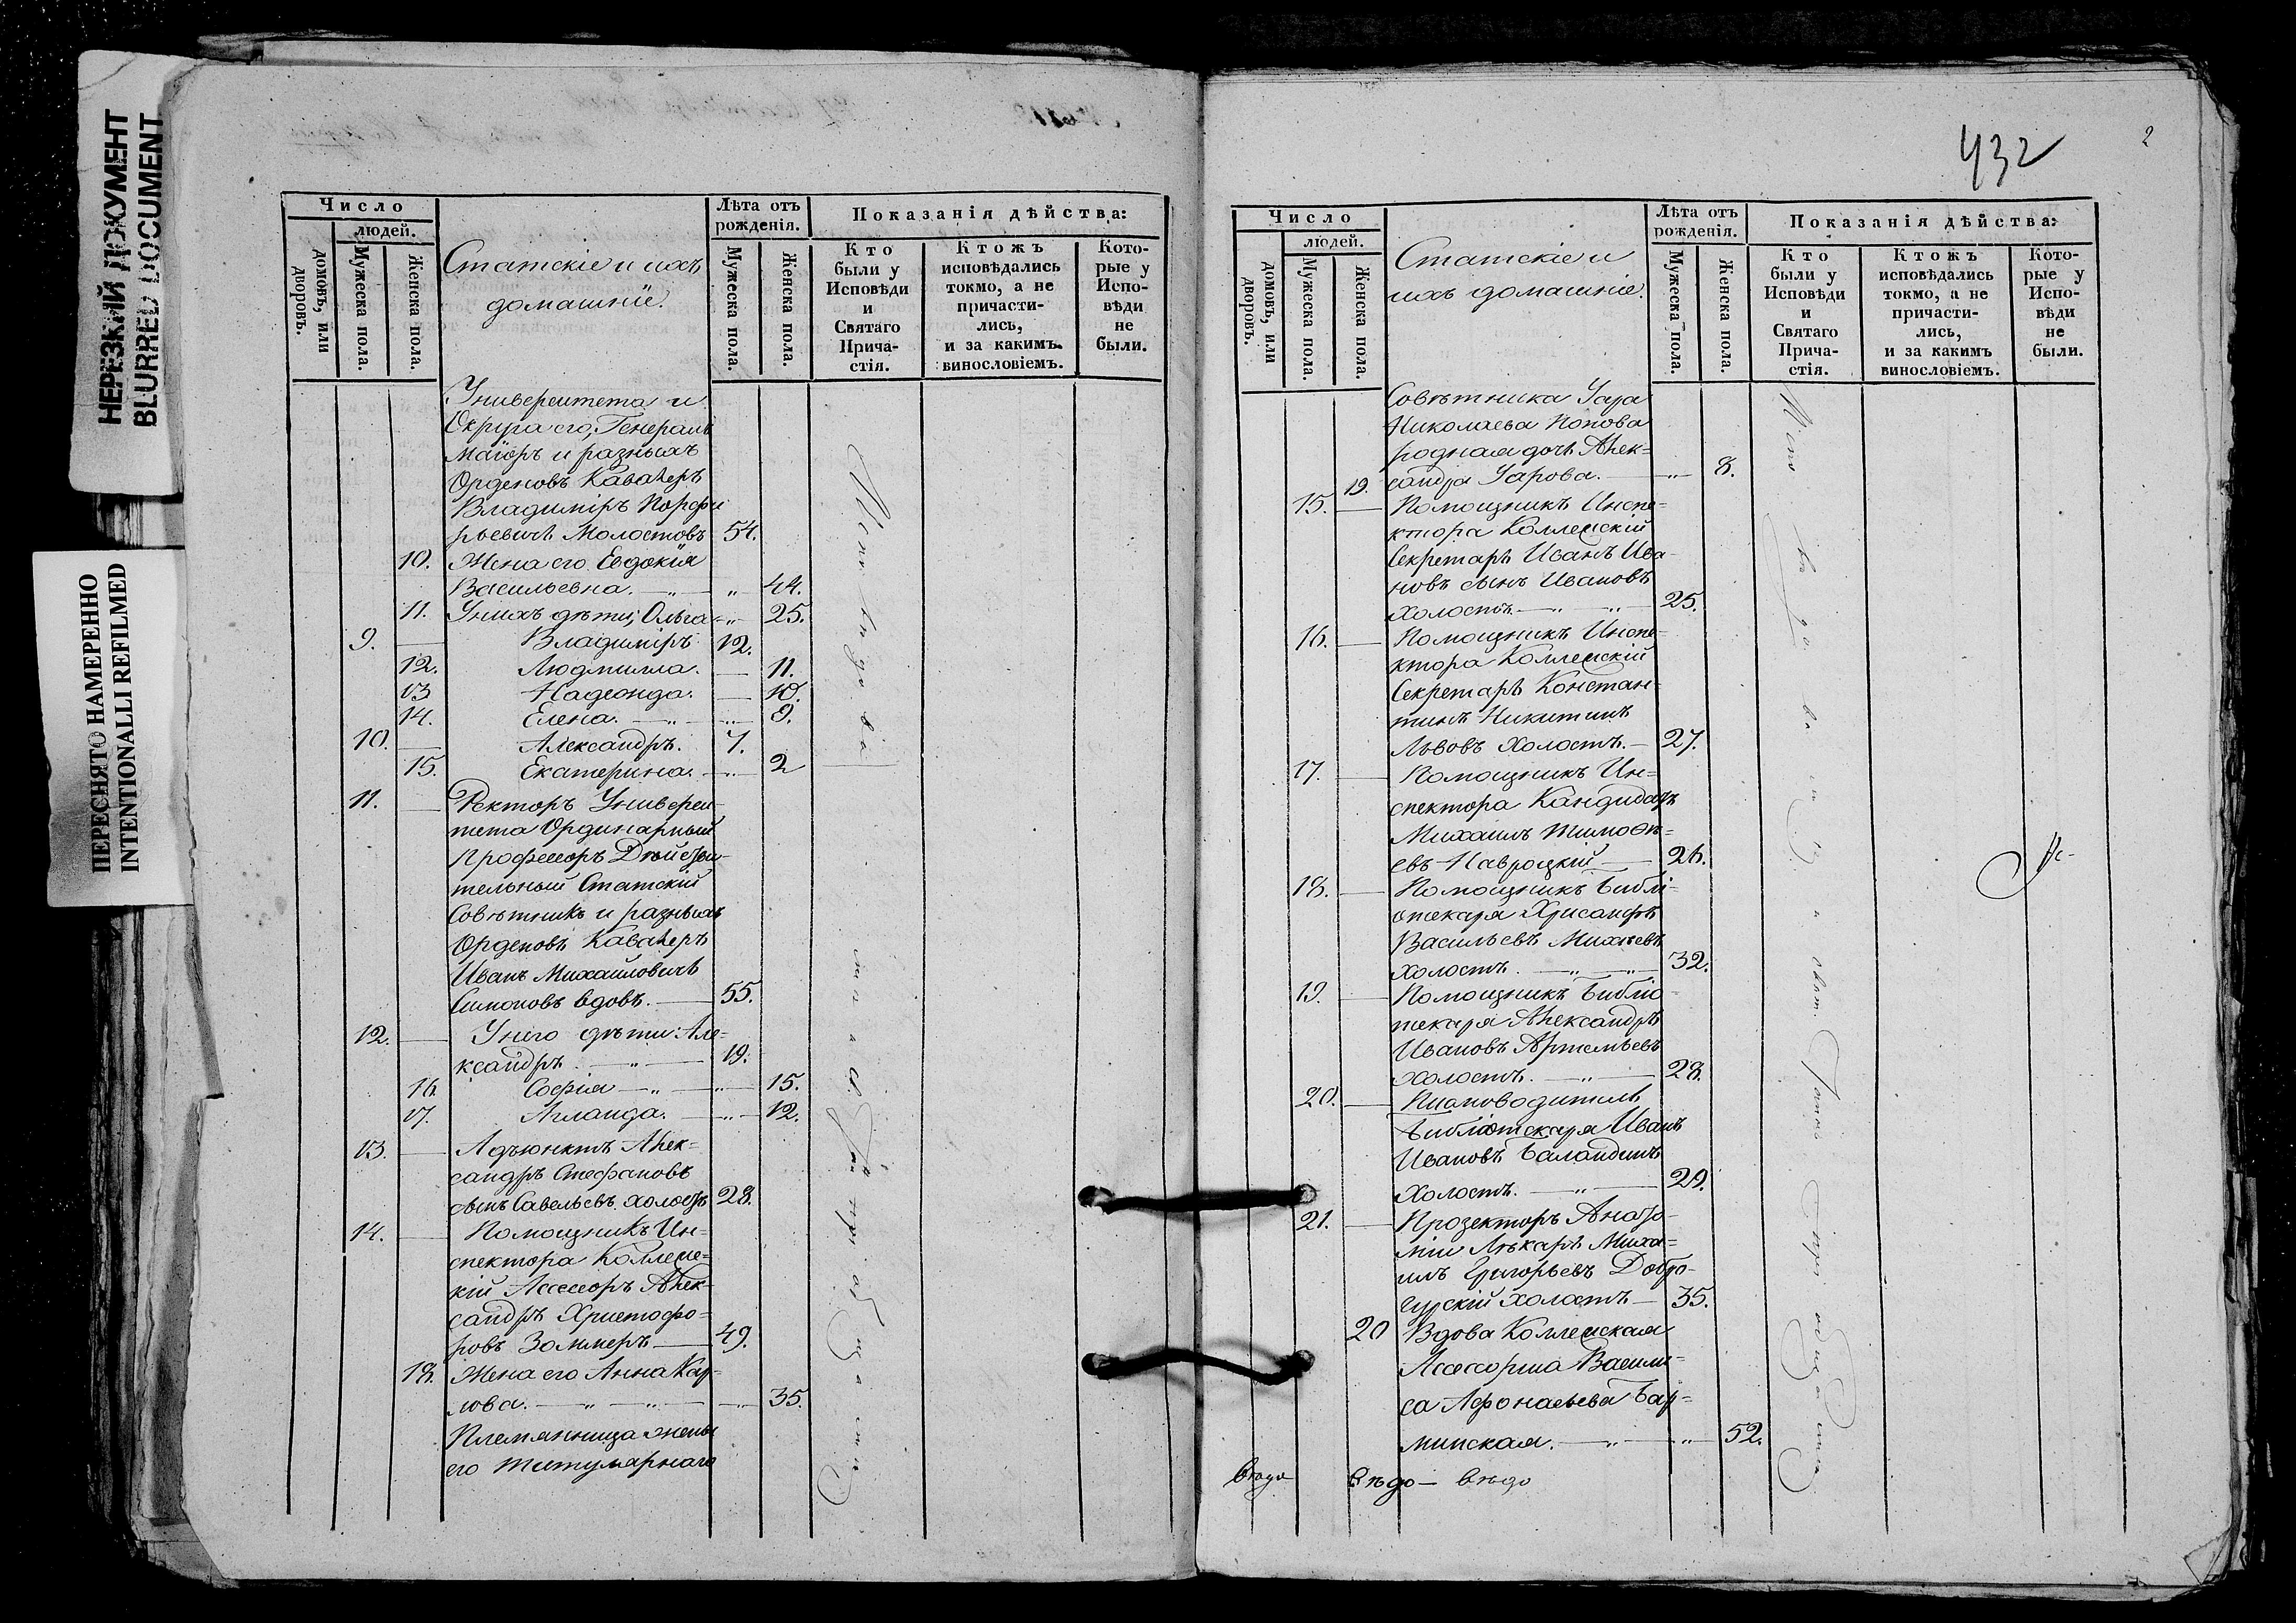 НЕРЕЗКИЙ ДОКУМЕНТ
BLURRED DOCUMENT
ПЕРЕСНЯТО НАМЕРЕННО
INTENTIONALLI REFILMED
Число
людей.
домовъ, или дворовъ.
Мужеска пола.
Женска пола.
Статскіе и ихъ
домашніе.
Лѣта отъ рожденія.
Мужеска пола.
Женска пола.
Показанія дѣйства:
Кто были у Исповѣди и Святаго Прича-стія.
Ктожъ исповѣдались токмо, а не причасти-лись, и за какимъ винословіемъ.
Кото-рые у Испо-вѣди не были.
Университета и
Округа его, Генералъ
Маіоръ и разныхъ
Орденовъ Кавалеръ
Владиміръ Порфи
рьевичь Молостовъ 54.
10. Жена его Евдокія
Васильевна. 44.
11. У нихъ дѣти; Ольга 25.
9. Владиміръ 12.
12. Людмилла. 11.
13 Надежда. 10.
14. Елена. 9.
10. Александръ. 7.
15. Екатерина. 2
11. Ректоръ Универси-
тета Ординарный
Профессоръ Дѣйстви-
тельный Статскій
Совѣтникъ и разныхъ
Орденовъ Кавалеръ
Иванъ Михайловичь
Симоновъ вдовъ. 55.
12. У него дѣти: Але-
ксандръ. 19.
16. Софія 15.
17. Аглаида. 12.
13. Адъюнктъ Алек-
сандръ Стефановъ
сынъ Савельевъ холостъ 28.
14. Помощникъ Ин-
спектора Коллеж-
кій Ассесоръ Алек-
сандръ Христофо-
ровъ Зоммеръ 49.
18. Жена его Анна Кар-
лова. 35.
Племянница жены
его Титулярнаго
432
2
Число
людей.
домовъ, или дворовъ.
Мужеска пола.
Женска пола.
Статскіе и
ихъ домашніе.
Лѣта отъ рожденія.
Мужеска пола.
Женска пола.
Показанія дѣйства:
Кто были у Исповѣди и Святаго Прича-стія.
Ктожъ исповѣдались токмо, а не причасти-лись, и за какимъ винословіемъ.
Кото-рые у Испо-вѣди не были.
Совѣтника Уара
Николаева Попова
родная дочь Алек-
19. сандра Уарова. 8.
15. Помощникъ Инспе-
ктора Коллежскій
Секретарь Иванъ Ива-
новъ сынъ Ивановъ
холостъ. 25.
16. Помощникъ Инспе-
ктора Коллежскій
Секретарь Констан-
тинъ Никитинъ
Львовъ холостъ. 27.
17. Помощникъ Ин-
спектора Кандидатъ
Михаилъ Тимоѳѣ-
евъ Навроцкій 26.
18. Помощникъ Библі-
отекаря Хрисанфъ
Васильевъ Михѣевъ
холостъ. 32.
19. Помощникъ Библіо-
текаря Александръ
Ивановъ Артемьевъ
холостъ. 28.
20. Письмоводитель
Библіотекаря Иванъ
Ивановъ Баландинъ
холостъ. 29.
21. Прозекторъ Анато-
міи Лѣкарь Миха-
илъ Григорьевъ Добро-
гурскій холостъ 35.
20 Вдова Коллежская
Ассесорша Васили-
са Афонасьева Бар-
минская. 52.